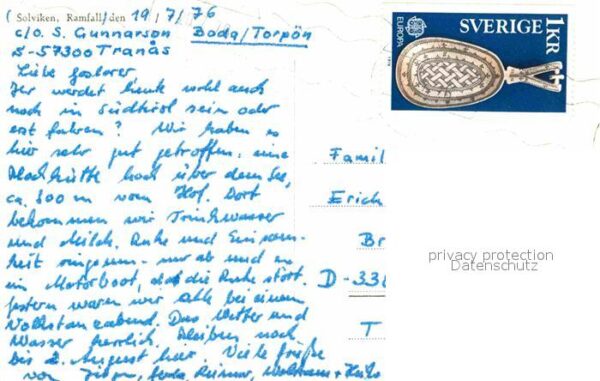 (Solviken, Ramfall/den 19/7/76
c/o. S. Gunnarson Boda/Torpön
S-57300 Tranås
Liebe Goslarer
Ihr werdet heute wohl auch
noch in Südtirol sein oder
erst fahren? Wir haben es
hier sehr gut getroffen: eine
Blockhütte hoch über dem See,
ca. 800 m vom Hof. Dort
bekommen wir Trinkwasser
und Milch. Ruhe und Einsam-
keit ringsum - nur ab und an
ein Motorboot, das die Ruhe stört.
Gestern waren wir alle bei einem
Volkstanzabend. Das Wetter und
Wasser herrlich. Bleiben noch
bis 2. August hier. Viele Grüße
von Jürgen, Reimar, +
Famil
Erich
Br
D-338
T
EUROPA
SVERIGE 1KR
privacy protection
Datenschutz